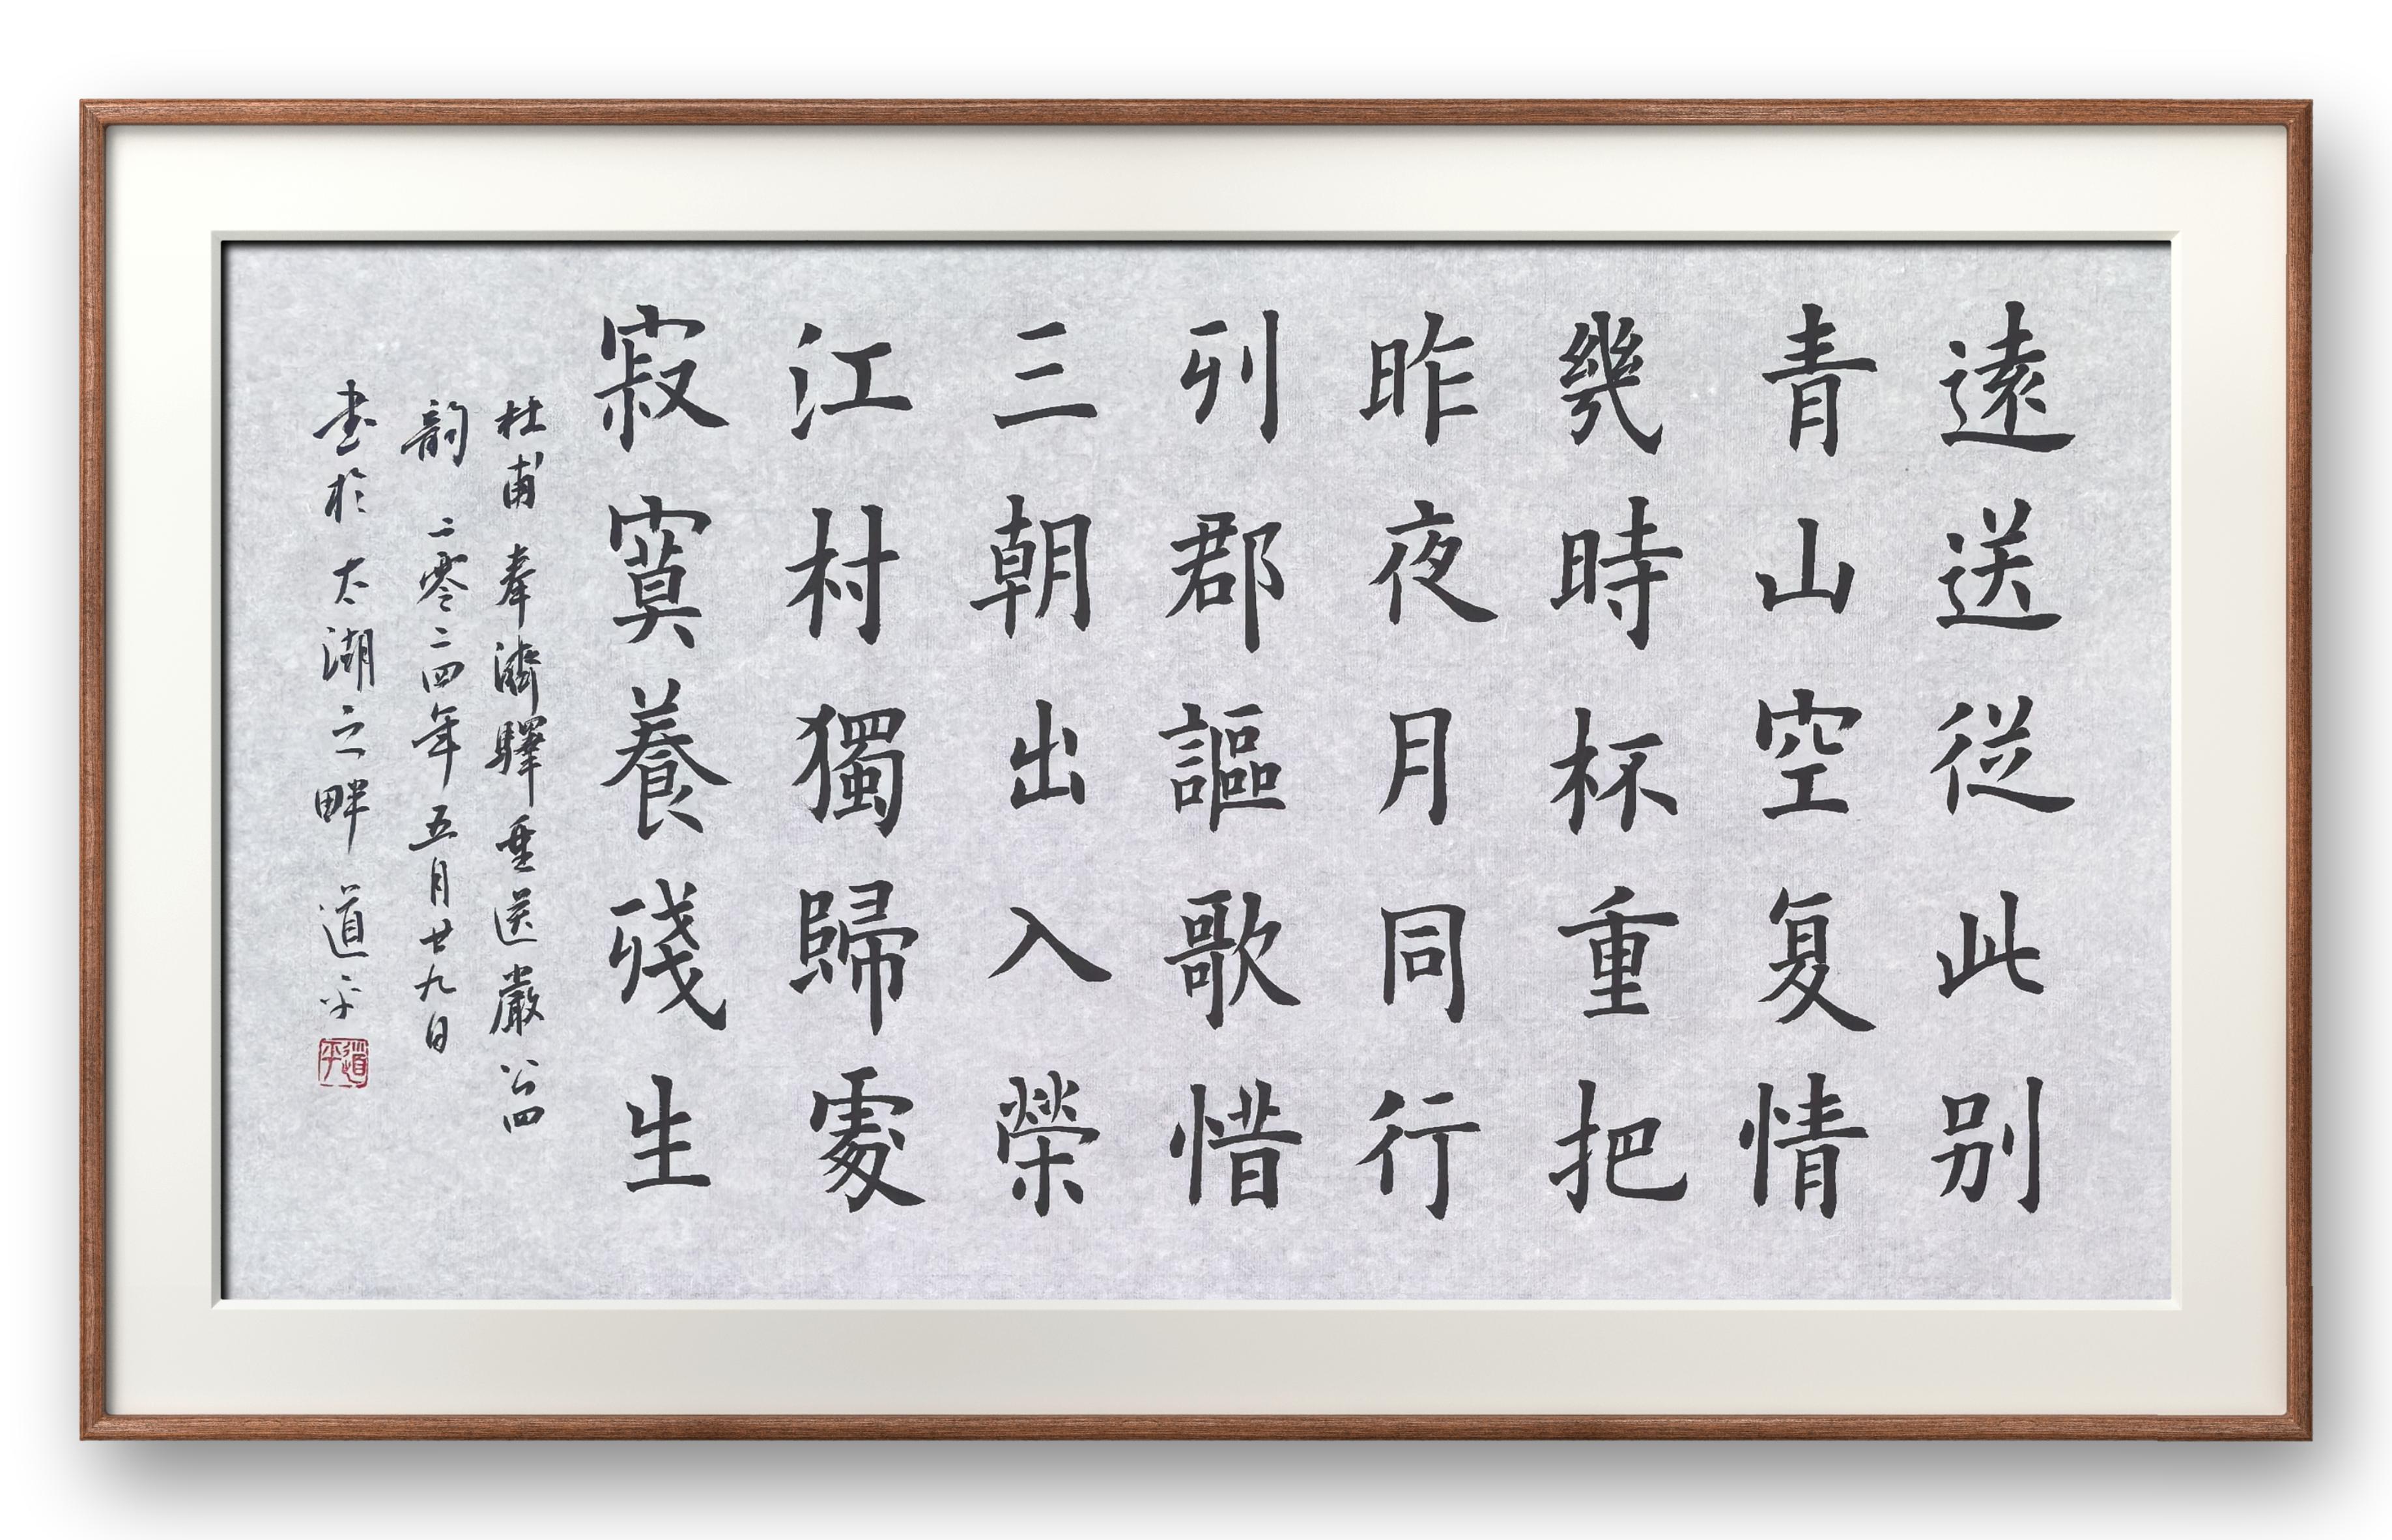 遠送從此别
青山空复情
幾時杯重把
昨夜月同行
列郡謳歌惜
三朝出入榮
江村獨歸處
寂寞養殘生
杜甫奉濟驛重送嚴公四
韵 二零二四年五月廿九日
书於太湖之畔 道平
道平